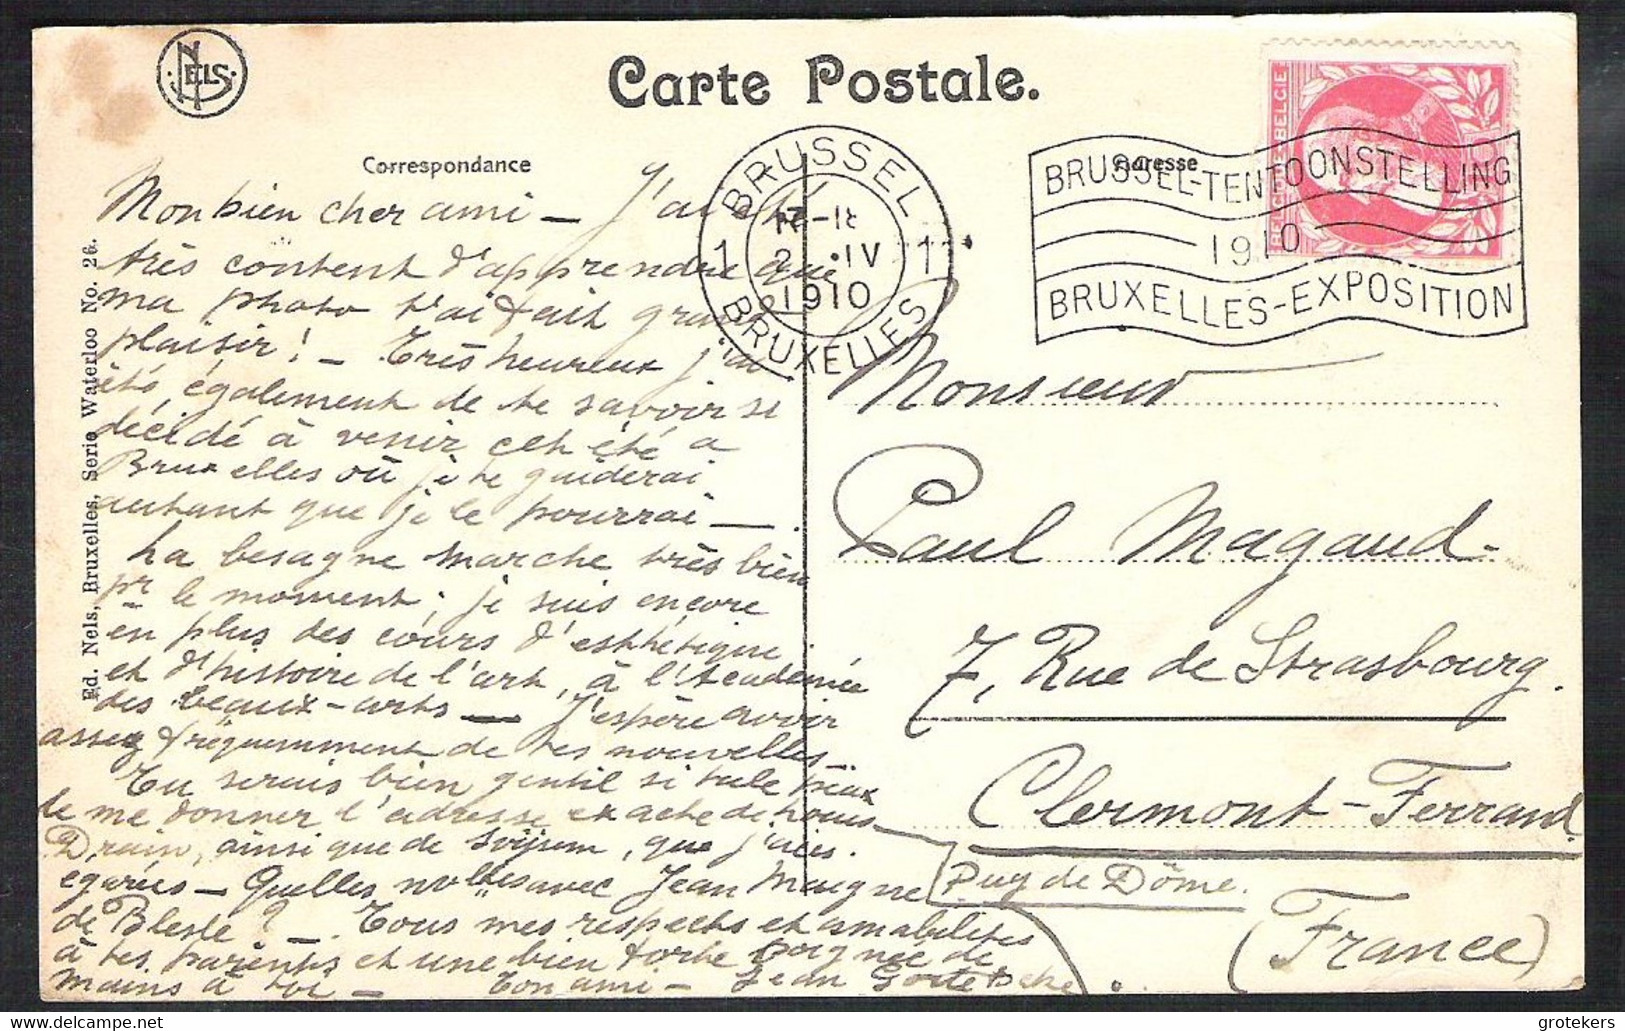 NELS
Carte Postale.
Correspondance
Adresse
BRUSSEL
1 1
IV
1910
BRUXELLES
BRUSSEL-TENTOONSTELLING
1910
BRUXELLES-EXPOSITION
BELGIE
Ed. Nels, Bruxelles, Serie Waterloo No. 26.
Mon bien cher ami — J'ai été
très content d'apprendre que
ma photo t'ai fait grand
plaisir! — Très heureux j'ai
été également de te savoir si
décidé à venir cet été a
Bruxelles où je te guiderai
autant que je le pourrai —.
La besogne marche très bien
pr le moment; je suis encore
en plus des cours d'esthétique
et d'histoire de l'art, à l'Académie
des beaux-arts — J'espère avoir
assez fréquemment de tes nouvelles —
Tu serais bien gentil si tu le peux
de me donner l'adresse exacte de
Drain, ainsi que de, que j'ai
égarées — Quelles nolles avec Jean Maigne
de Blesle? — Tous mes respects et amabilités
à tes parents et une bien forte poignée de
mains à toi — Ton ami — Jean
Monsieur
Paul Magaud.
7, Rue de Strasbourg.
Clermont-Ferrand
Puy de Dôme.
(France)
grotekers